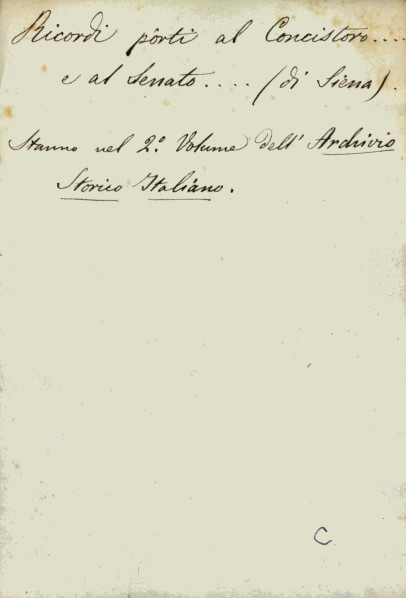 Ricordi pòrti al Concistoro....
e al Senato.... (di Siena).
Stanno nel 2.º Volume dell' Archivio
Storico Italiano.
C